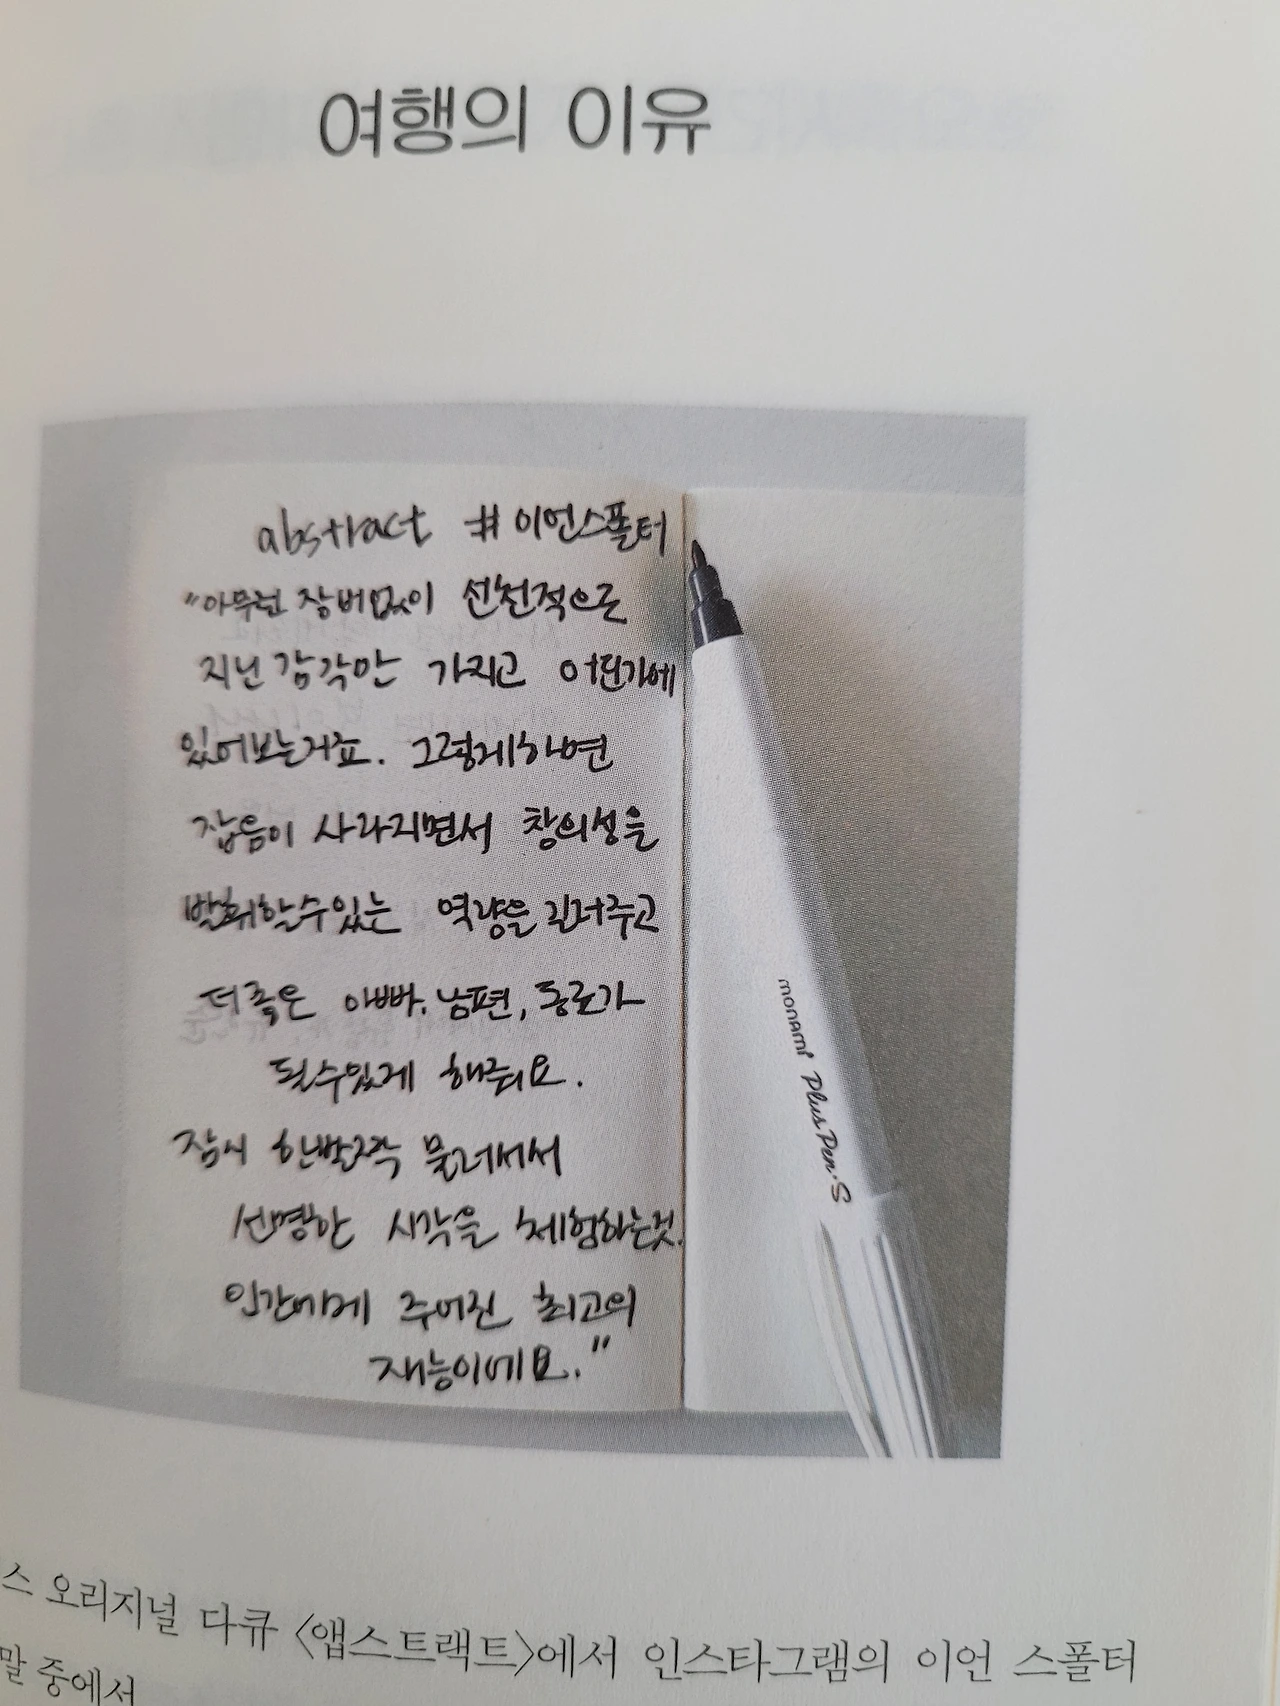 여행의 이유
abstract #이언스폴터
"아무런 장비없이 선천적으로
지닌 감각만 가지고 어딘가에
있어보는거죠. 그렇게하면
잡음이 사라지면서 창의성을
발휘할수있는 역량을 길러주고
더좋은 아빠, 남편, 동료가
될수있게 해줘요.
잠시 한발짝 물러서서
선명한 시각을 체험하는것.
인간에게 주어진 최고의
재능이에요."
monami Plus Pen·S
스 오리지널 다큐 〈앱스트랙트〉에서 인스타그램의 이언 스폴터
말 중에서